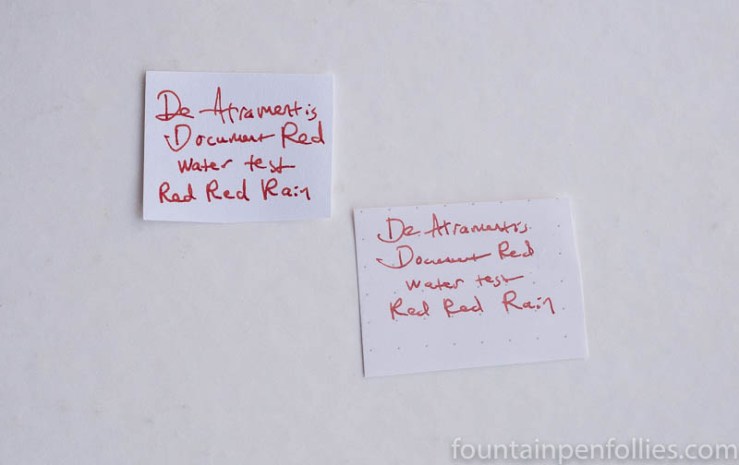 De Atramentis
Document Red
Water test
Red Red Rain
De Atramentis
Document Red
Water test
Red Red Rain
fountainpenfollies.com